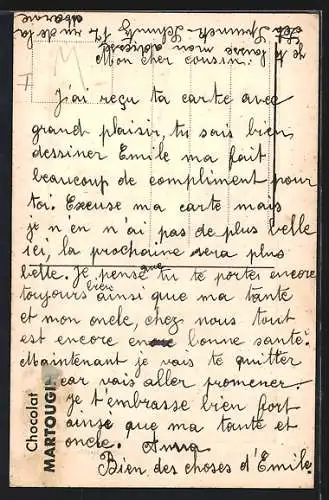 Mon cher cousin:
J'ai reçu ta carte avec
grand plaisir, tu sais bien
dessiner Emile ma fait
beaucoup de compliment pour
toi. Excuse ma carte mais
je n'en n'ai pas de plus belle
ici, la prochaine sera plus
belle. Je pense que tu te portes encore
toujours bien ainsi que ma tante
et mon oncle, chez nous tout
est encore en bonne santé.
Maintenant je vais te quitter
car vais aller promener.
je t'embrasse bien fort
ainsi que ma tante et
oncle. Anna
Bien des choses d'Emile
Je te laisse mon adresse
12 ru de la
Chocolat
MARTOUGIN